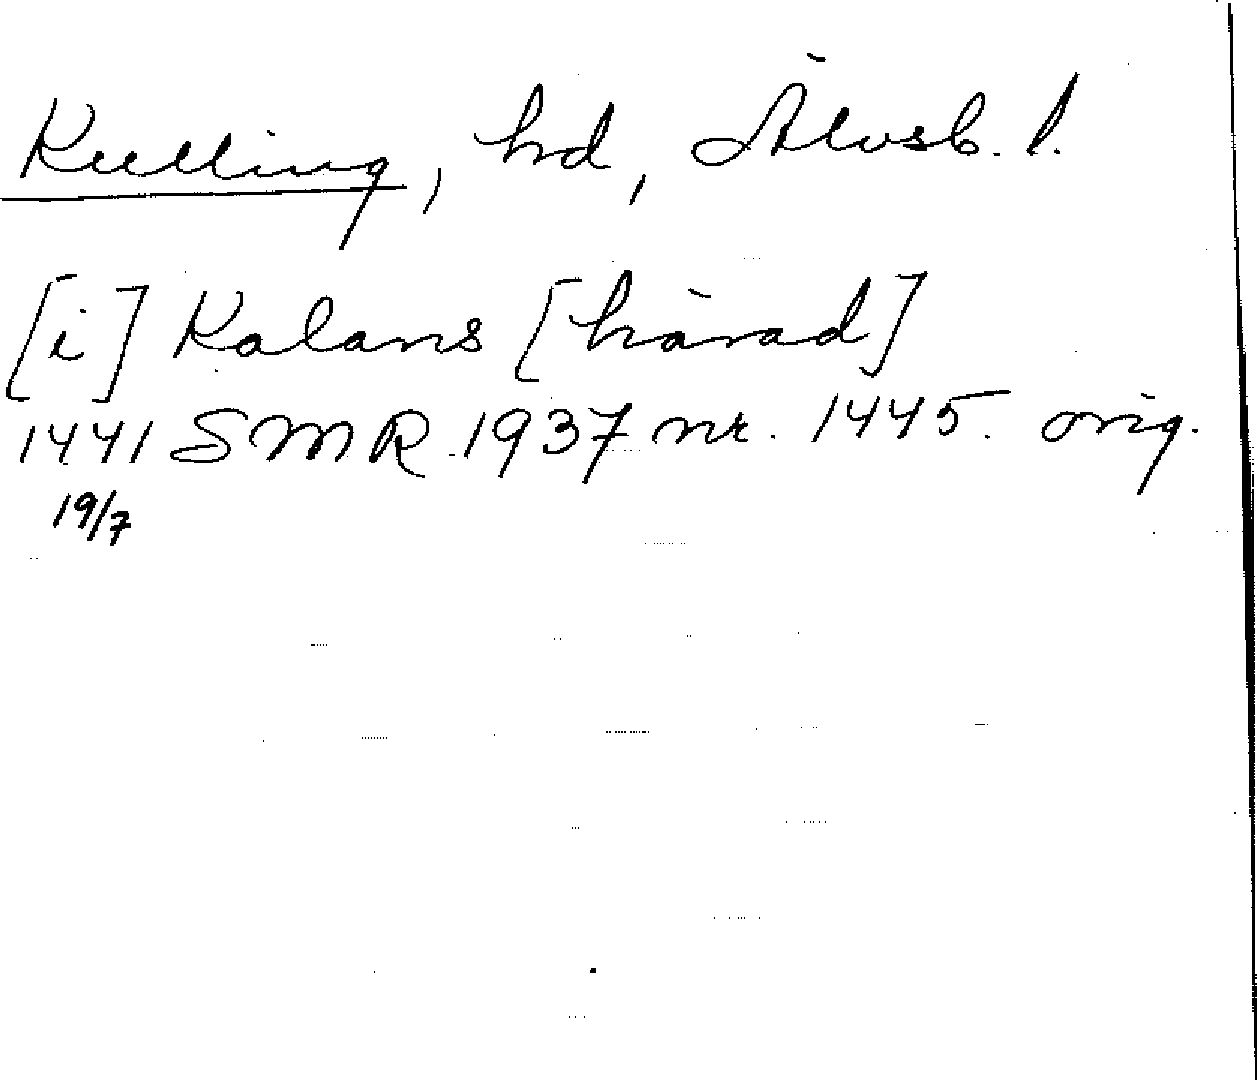 Kulling, hd, Älvsb. l.
[i] Kalans [härad]
1441 SMR 1937 nr. 1445. orig.
19/7